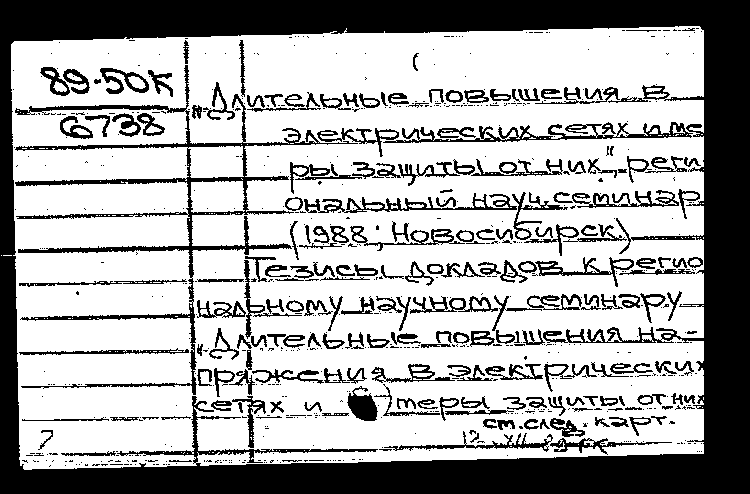 89-50К
6738
„Длительные повышения в
электрических сетях и ме
ры защиты от них", реги
ональный науч. семинар
(1988; Новосибирск)
Тезисы докладов к регио
нальному научному семинару
„Длительные повышения на-
пряжения в электрических
сетях и меры защиты от них
см. след. карт.
12 XII
7